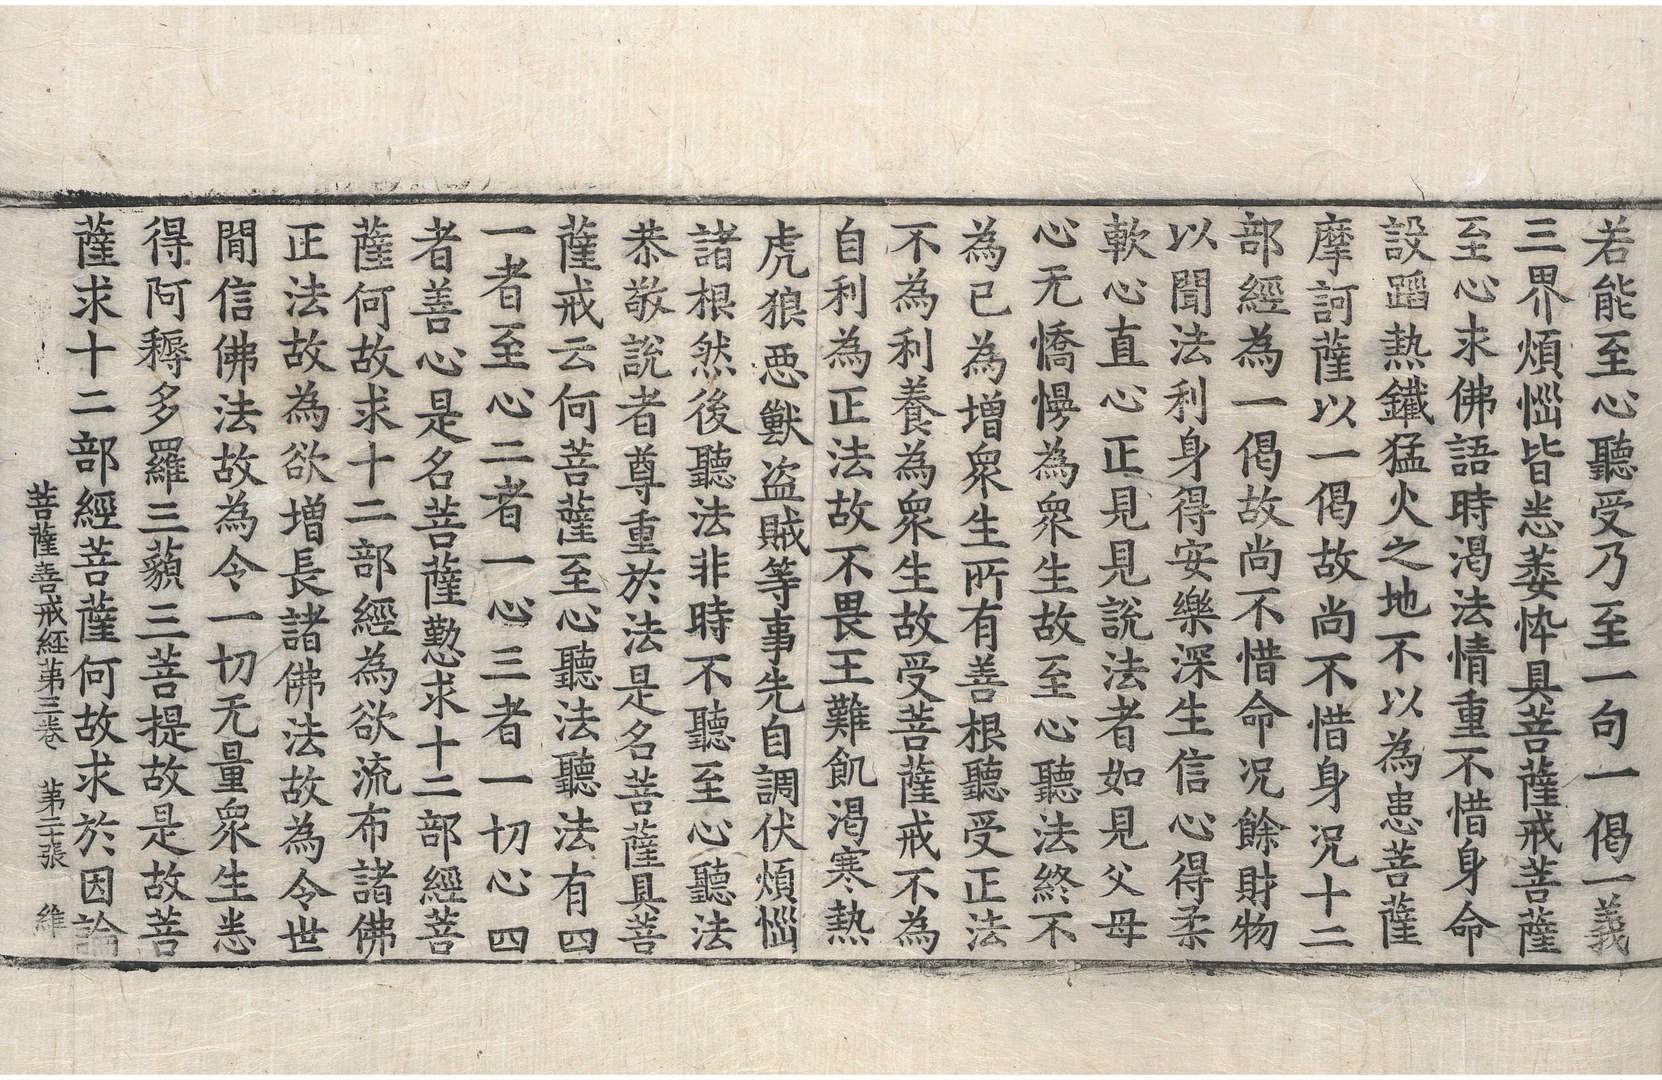 若能至心聽受乃至一句一偈一義
三界煩惱皆悉萎悴具菩薩戒菩薩
至心求佛語時渴法情重不惜身命
設蹈熱鐵猛火之地不以為患菩薩
摩訶薩以一偈故尚不惜身況十二
部經為一偈故尚不惜命況餘財物
以聞法利身得安樂深生信心得柔
軟心直心正見見說法者如見父母
心无憍慢為衆生故至心聽法終不
為已為增衆生所有善根聽受正法
不為利養為衆生故受菩薩戒不為
自利為正法故不畏王難飢渴寒熱
虎狼惡獸盗賊等事先自調伏煩惱
諸根然後聽法非時不聽至心聽法
恭敬說者尊重於法是名菩薩具菩
薩戒云何菩薩至心聽法聽法有四
一者至心二者一心三者一切心四
者善心是名菩薩懃求十二部經菩
薩何故求十二部經為欲流布諸佛
正法故為欲增長諸佛法故為令世
閒信佛法故為令一切无量衆生悉
得阿耨多羅三藐三菩提故是故菩
薩求十二部經菩薩何故求於因論
菩薩善戒經第三卷 第二十張 維